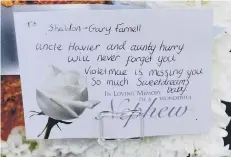 Shaldon + Gary Farrell
uncle Havier and aunty hurry
will never forget you
Violet mae is missing you
so much Sweetdreams
baby
IN LOVING MEMORY
OF A WONDERFUL
NEPHEW